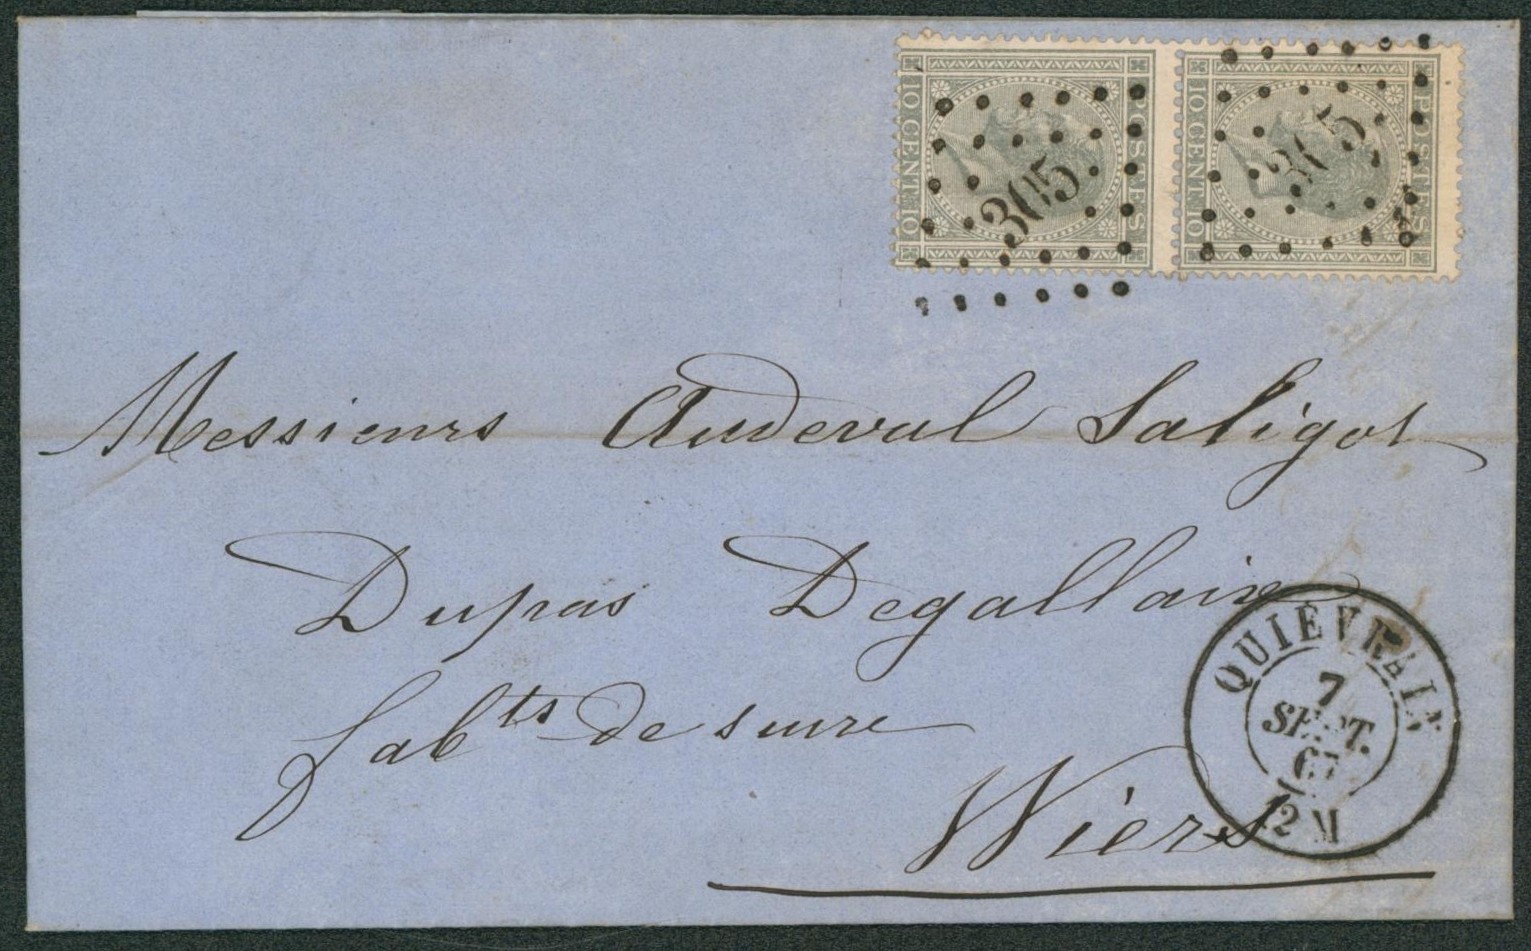 10 CENT. 10
POSTES
305
10 CENT. 10
POSTES
305
Messieurs Audeval Saligot
Dupas Degallaix
fabts de sucre
Wiers
QUIÉVRAIN
7
SEPT.
67
12 M